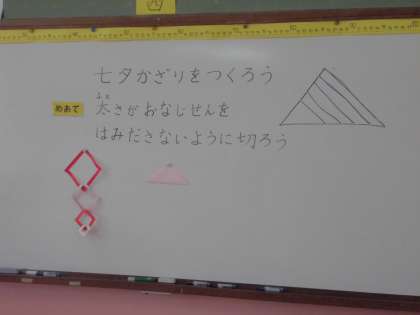 七夕かざりをつくろう
めあて
太さがおなじせんを
ふと
はみださないように切ろう